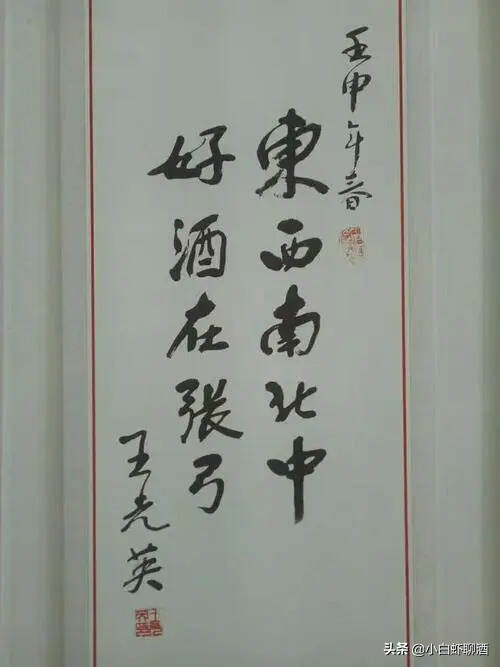 壬申年春
東西南北中
好酒在張弓
王光英
头条 @小白虾聊酒